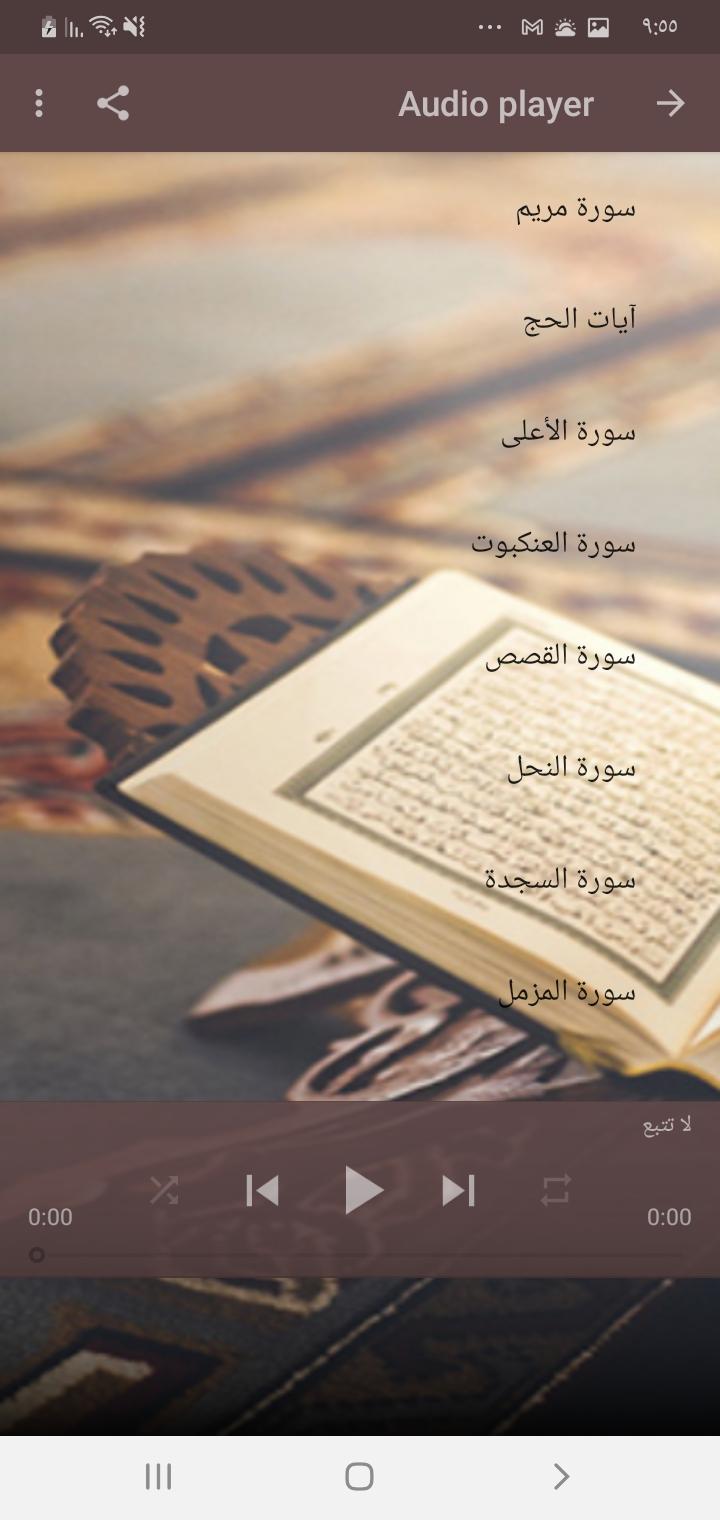 ٩:٥٥
Audio player
سورة مريم
آيات الحج
سورة الأعلى
سورة العنكبوت
سورة القصص
سورة النحل
سورة السجدة
سورة المزمل
لا تتبع
0:00
0:00